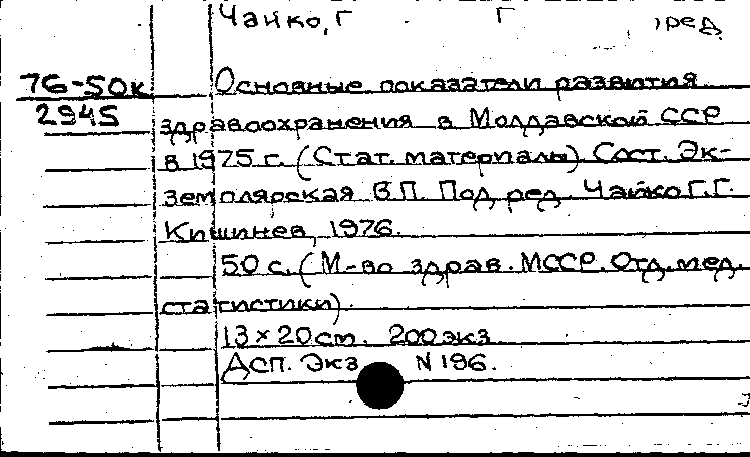 Чайко, Г Г ред.
76-50к Основные показатели развития
2945 здравоохранения в Молдавской ССР
в 1975 г. (Стат. материалы) Сост. Эк-
земплярская В.П. Под ред. Чайко Г.Г.
Кишинев, 1976.
50 с. (М-во здрав. МССР. Отд. мед.
статистики).
13 × 20 см. 200 экз.
Асп. Экз N 196.